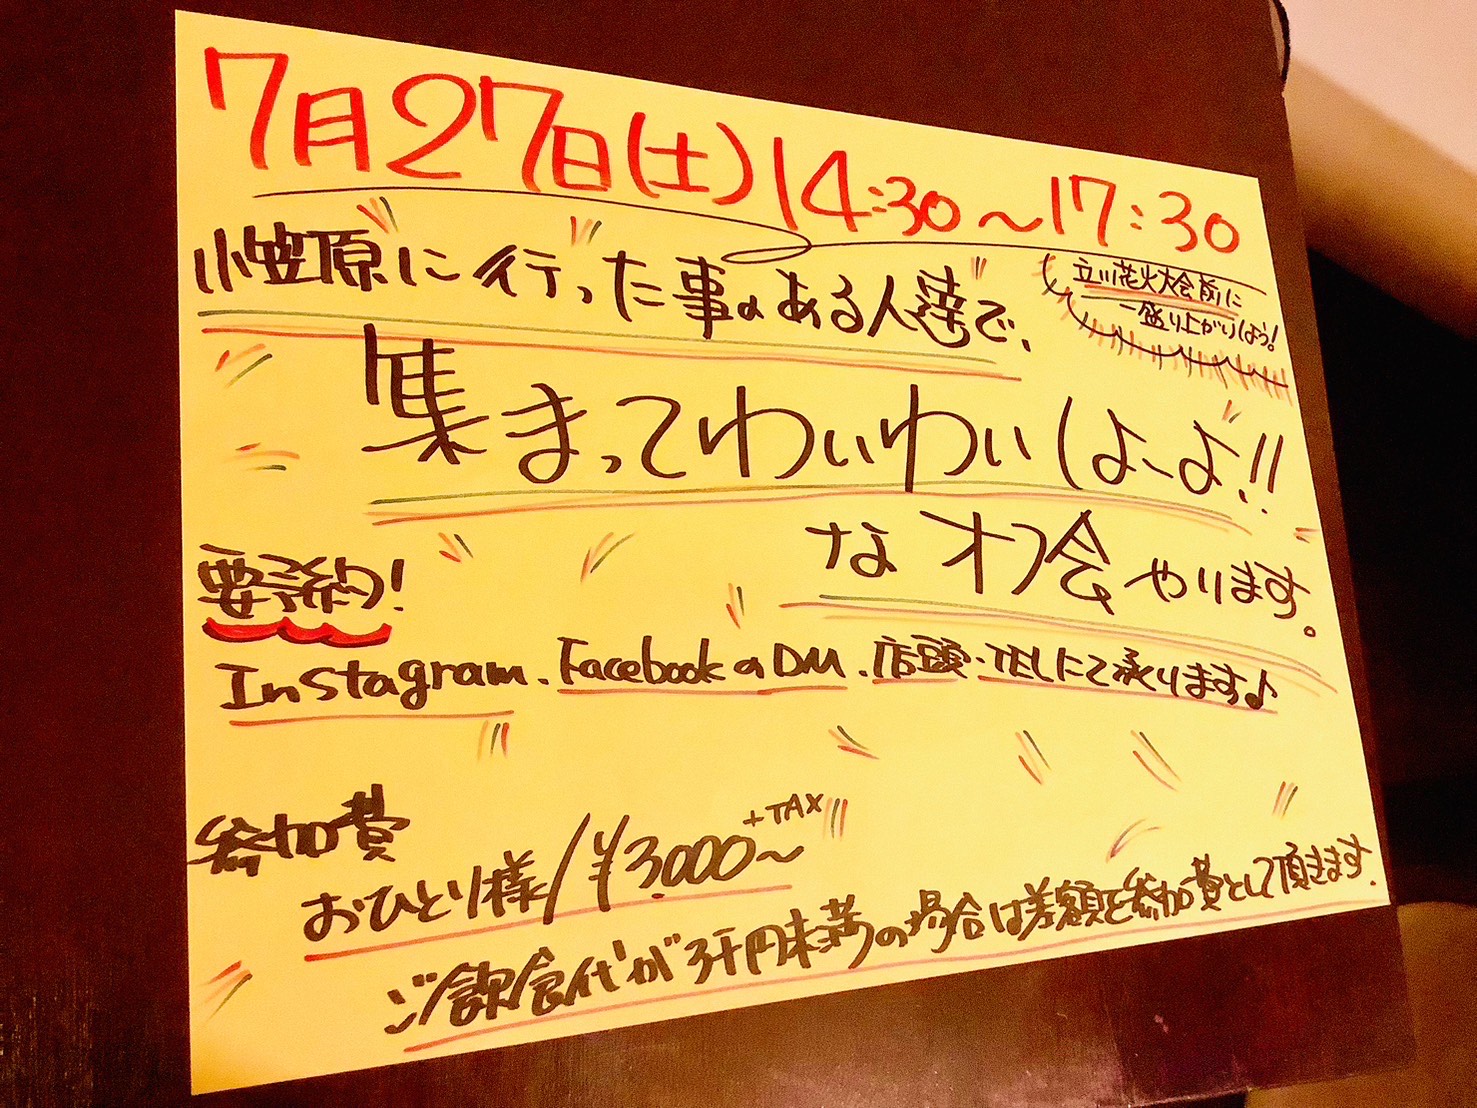 7月27日(土)14:30~17:30
小笠原に行った事のある人達で、
立川花火大会前に
一盛り上がりしよう!
集まってわいわいしよーよ!!
なオフ会やります。
要予約!
Instagram、FacebookのDM、店頭、TELにて承ります♪
参加費
おひとり様/¥3.000~+TAX
ご飲食代が3千円未満の場合は差額を参加費として頂きます.